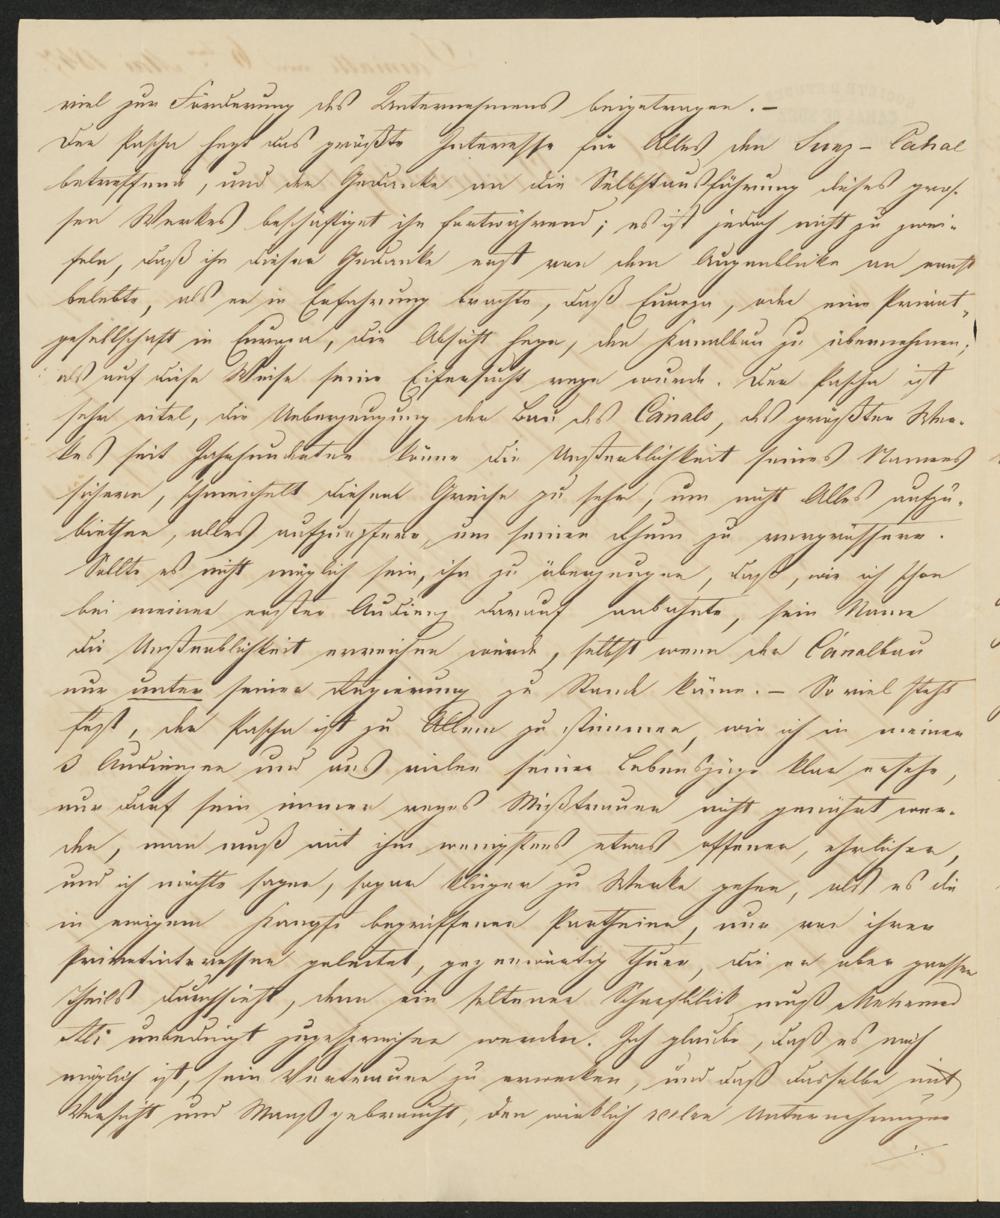 viel zur Förderung des Unternehmens beigetragen. –
Der Pascha hegt das größte Interesse für Alles den Suez-Canal
betreffend, und der Gedanke an die Selbstausführung dieses gros-
sen Werkes beschäftiget ihn fortwährend; es ist jedoch nicht zu zwei-
feln, daß ihn dieser Gedanke erst von dem Augenblicke an ernst
belebte, als er in Erfahrung brachte, daß Europa, oder eine Privat-
gesellschaft in Europa, die Absicht hege, den Kanalbau zu übernehmen;
als auf diese Weise seine Eifersucht rege wurde. Der Pascha ist
sehr eitel, die Ueberzeugung der Bau des Canals, des größten Wer-
kes seit Jahrhunderten könne die Unsterblichkeit seines Namens
sichern, schmeichelt diesem Greise zu sehr, um nicht Alles aufzu-
biethen, alles aufzuopfern, um seinen Ruhm zu vergrössern.
Sollte es nicht möglich sein, ihn zu überzeugen, daß, wie ich schon
bei meiner ersten Audienz darauf anbahnte, sein Name
die Unsterblichkeit erreichen würde, selbst wenn der Canalbau
nur unter seiner Regierung zu Stande käme. – So viel steht
fest, der Pascha ist zu Allem zu stimmen, wie ich in meinen
3 Audienzen und aus vielen seiner Lebenszüge klar ersehe,
nur darf sein immer reges Mißtrauen nicht genährt wer-
den, man muß mit ihm wenigstens etwas offener, ehrlicher,
und ich möchte sagen, sogar klüger zu Werke gehen, als es die
in ewigem Kampfe begriffenen Partheien, nur von ihren
Privatinteressen geleitet, gegenwärtig thuen, die er aber grossen
Theils durchsieht, denn ein seltener Scharfblick muß Mehemed
Ali unbedingt zugesprochen werden. Ich glaube, daß es mir
möglich ist, sein Vertrauen zu erwecken, und daß dasselbe mit
Vorsicht und Maaß gebraucht, den wirklich edlen Unternehmungen
./.